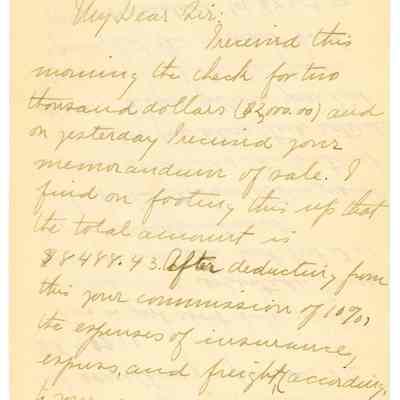 My Dear Sir:
I received this
morning the check for two
thousand dollars ($2,000.00) and
on yesterday I received your
memorandum of sale. I
find on footing this up that
the total amount is
$8488.43. After deducting from
this your commission of 10%,
the expenses of insurance,
express, and freight, (according,
to your